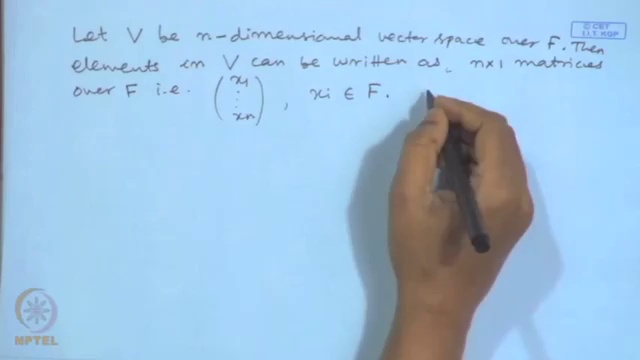 © CET
I.I.T. KGP
Let V be n-dimensional vector space over F. Then
elements in V can be written as, n×1 matrices
over F i.e. (x₁ ⋮ xₙ), xᵢ ∈ F.
NPTEL